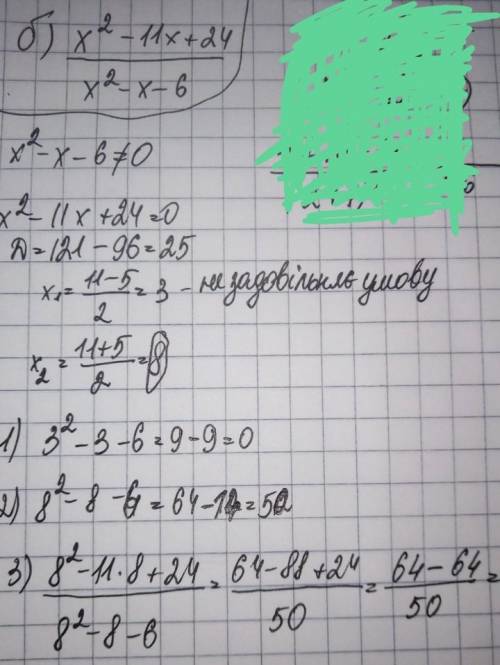 б) x² - 11x + 24 / x² - x - 6
x² - x - 6 ≠ 0
x² - 11x + 24 = 0
Д = 121 - 96 = 25
x₁ = 11-5 / 2 = 3 - не задовільняє умову
x₂ = 11+5 / 2 = 8
1) 3² - 3 - 6 = 9 - 9 = 0
2) 8² - 8 - 6 = 64 - 14 = 50
3) 8² - 11·8 + 24 / 8² - 8 - 6 = 64 - 88 + 24 / 50 = 64 - 64 / 50 =